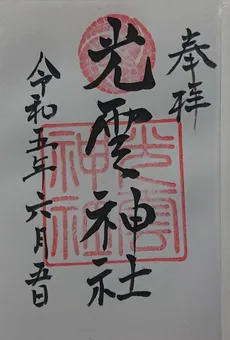 奉拝
光雲神社
光雲神社
令和五年六月五日